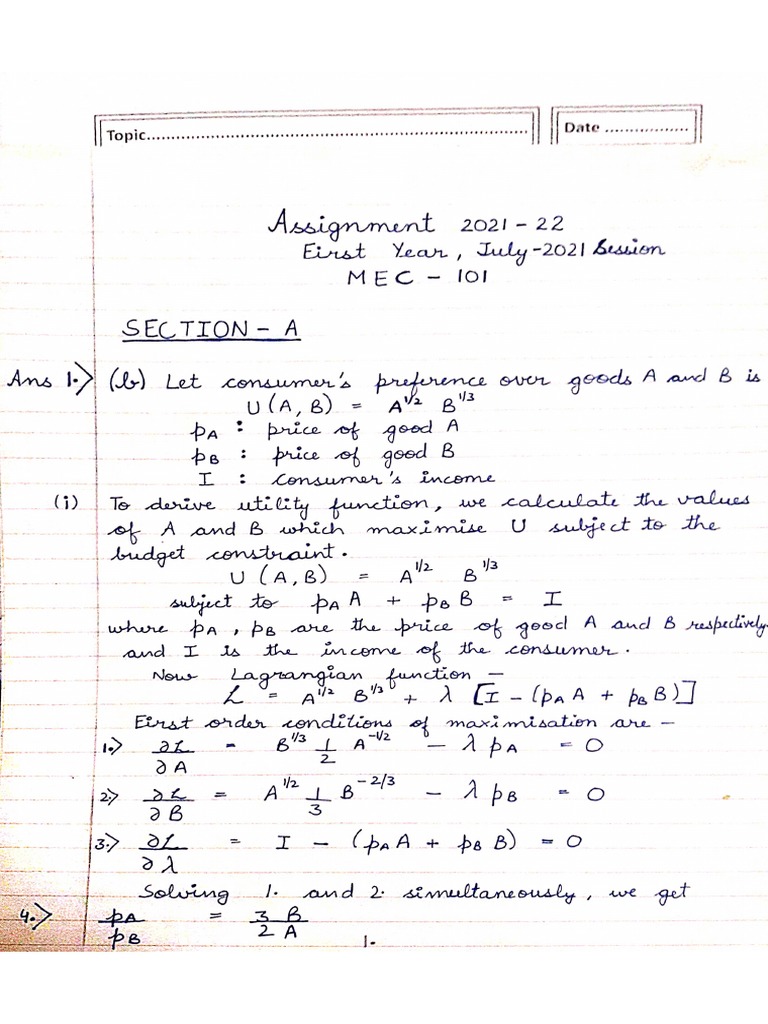 Topic.................................................................................. Date ..................
Assignment 2021 - 22
First Year, July-2021 Session
MEC - 101
SECTION - A
Ans 1.> (b) Let consumer's preference over goods A and B is
U(A, B) = A^1/2 B^1/3
pA : price of good A
pB : price of good B
I : consumer's income
(i) To derive utility function, we calculate the values
of A and B which maximise U subject to the
budget constraint.
U (A, B) = A^1/2 B^1/3
subject to pA A + pB B = I
where pA, pB are the price of good A and B respectively
and I is the income of the consumer.
Now Lagrangian function –
L = A^1/2 B^1/3 + λ [I - (pA A + pB B)]
First order conditions of maximisation are –
1.> ∂L/∂A = B^1/3 1/2 A^-1/2 - λ pA = 0
2.> ∂L/∂B = A^1/2 1/3 B^-2/3 - λ pB = 0
3.> ∂L/∂λ = I - (pA A + pB B) = 0
Solving 1. and 2. simultaneously, we get
4.> pA/pB = 3 B/2 A
1.